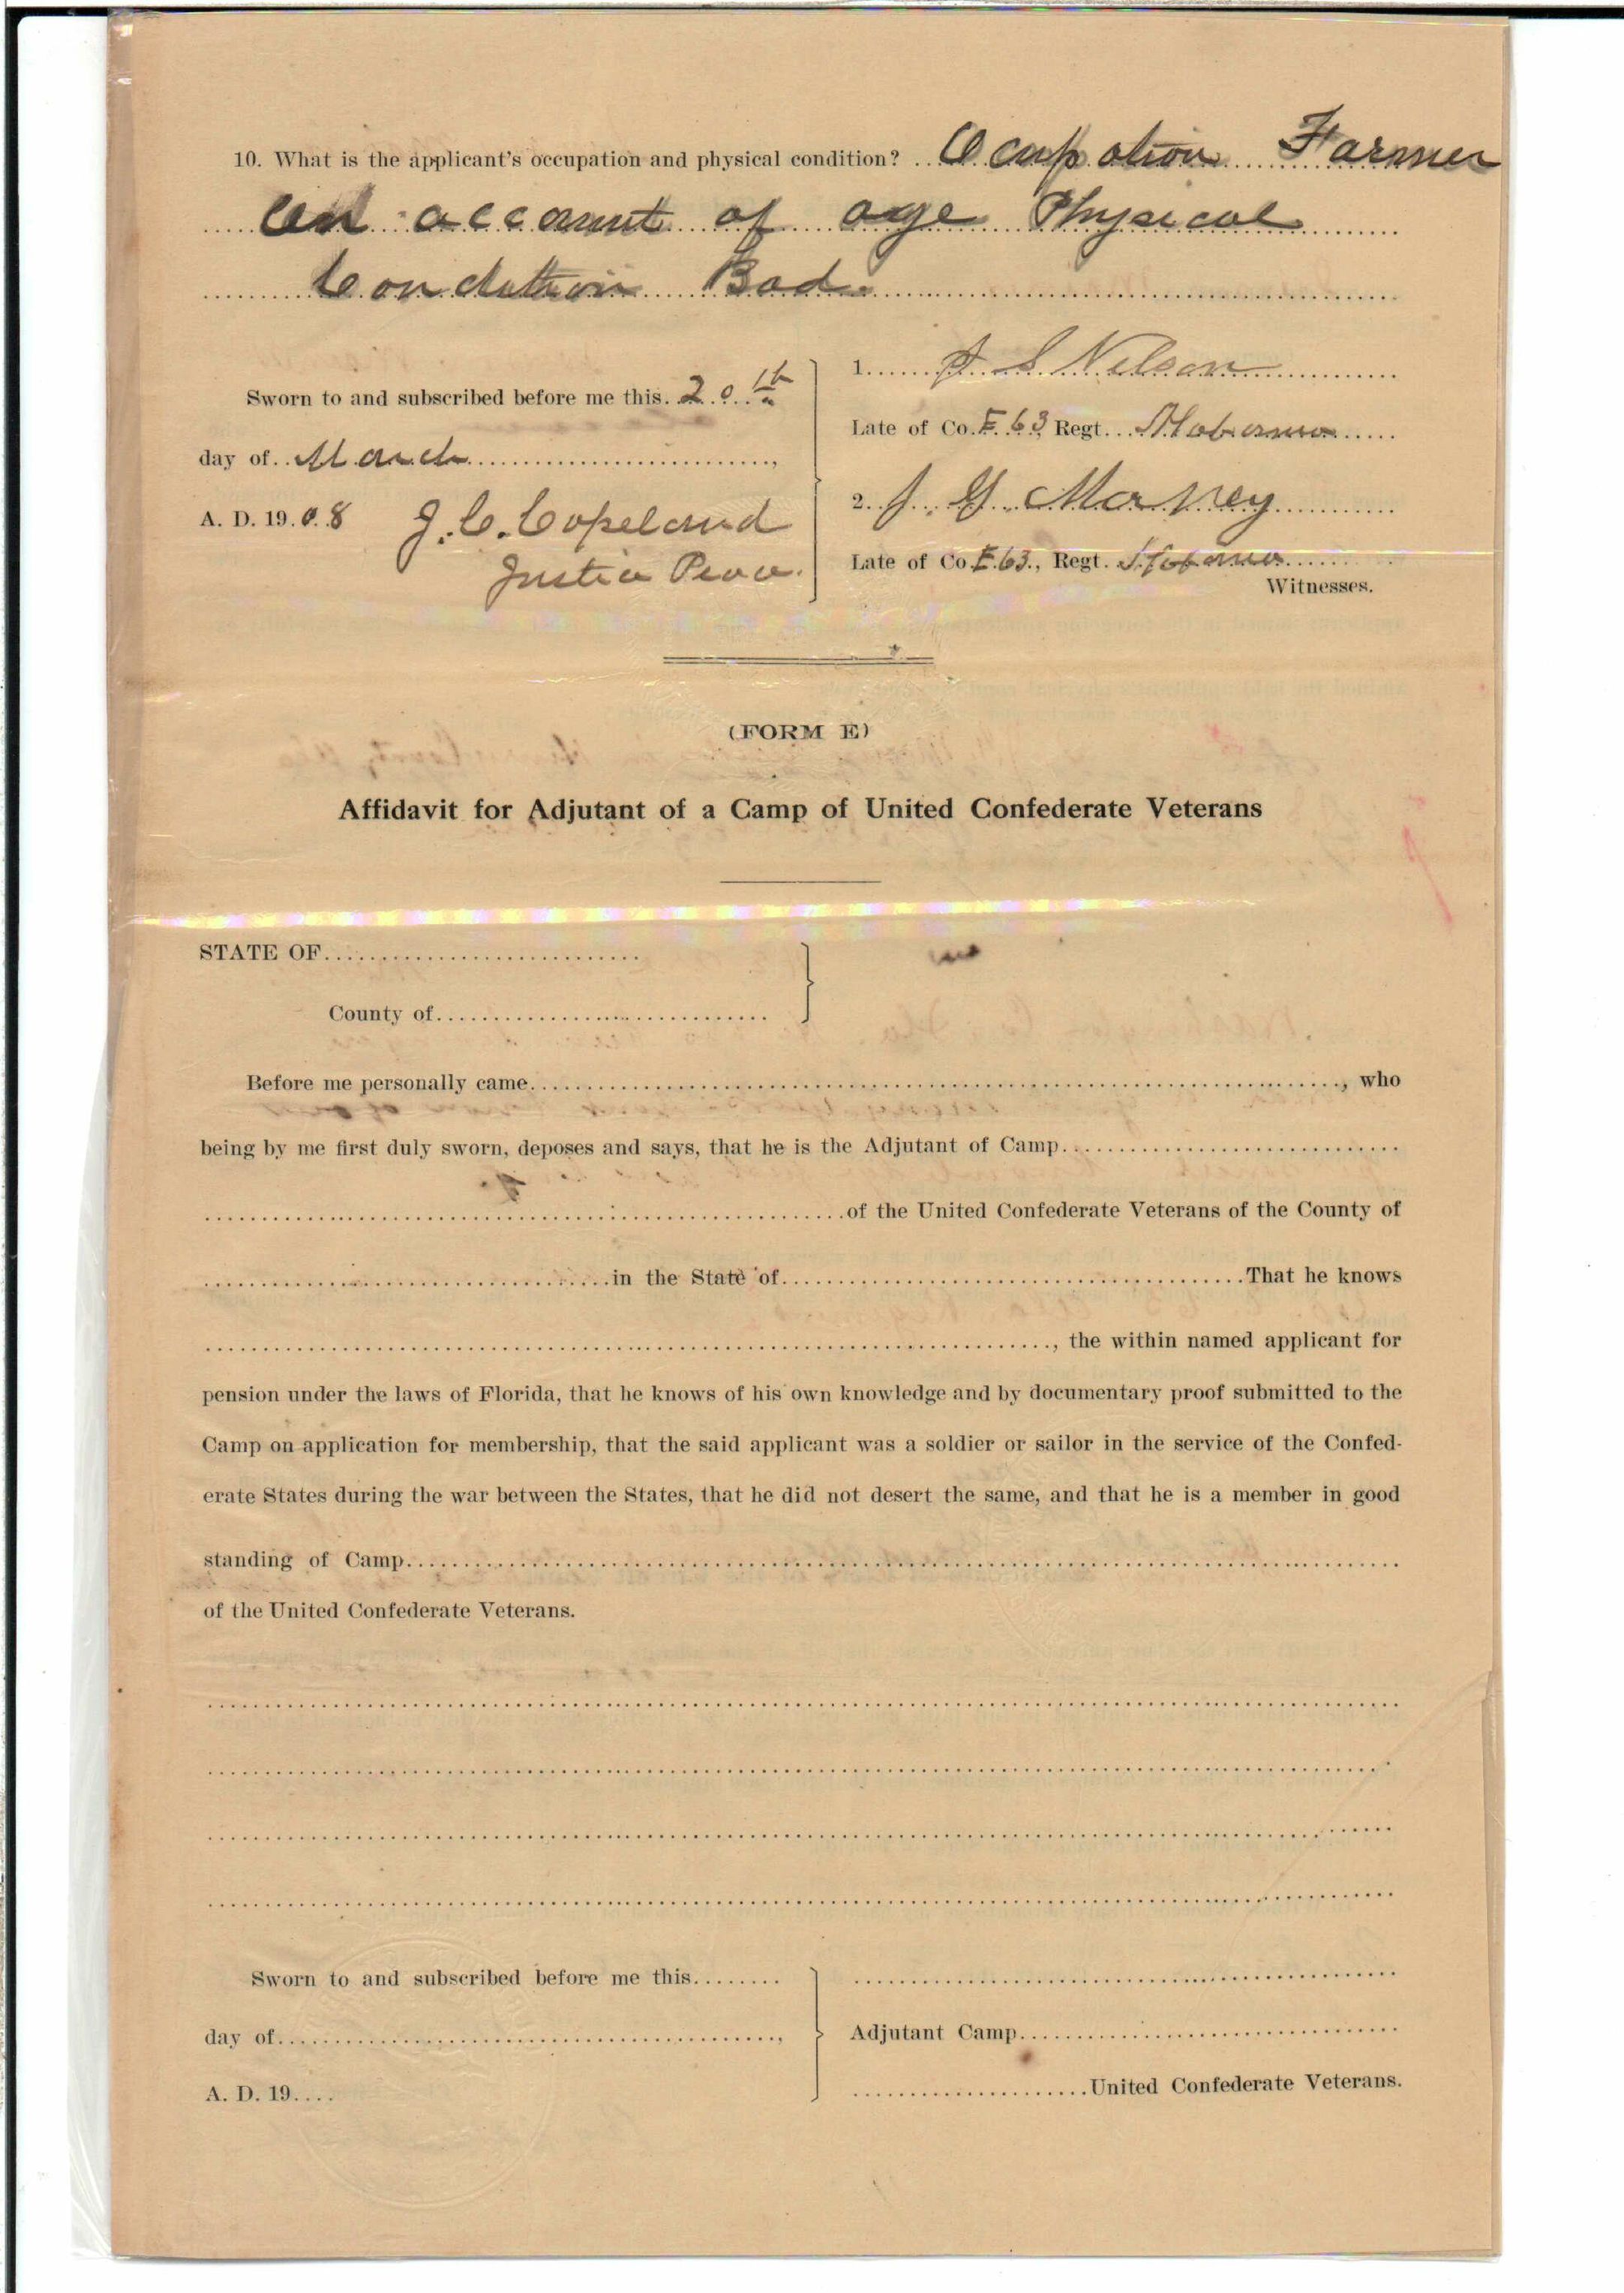 10. What is the applicant's occupation and physical condition? Ocupation Farmer
On account of age Physical
Condition Bad
Sworn to and subscribed before me this 20th
day of March,
A. D. 1908 J. C. Copeland
Justice Peace.
1. S Nelson
Late of Co. E 63, Regt. Alabama
2. J.
Late of Co E. 63., Regt. Alabama
Witnesses.
(FORM E)
Affidavit for Adjutant of a Camp of United Confederate Veterans
STATE OF
County of
Before me personally came, who
being by me first duly sworn, deposes and says, that he is the Adjutant of Camp
of the United Confederate Veterans of the County of
in the State of That he knows
, the within named applicant for
pension under the laws of Florida, that he knows of his own knowledge and by documentary proof submitted to the
Camp on application for membership, that the said applicant was a soldier or sailor in the service of the Confed-
erate States during the war between the States, that he did not desert the same, and that he is a member in good
standing of Camp
of the United Confederate Veterans.
Sworn to and subscribed before me this
day of,
A. D. 19
Adjutant Camp
United Confederate Veterans.